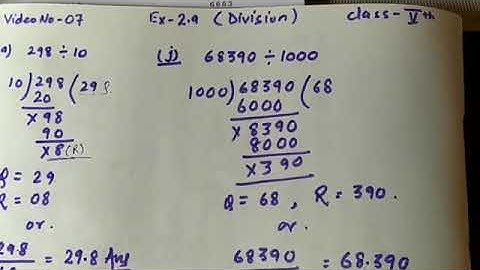 Video No-07 Ex-2.9 (Division) class-Vth
a) 298 ÷ 10
10) 298 (29
20
x 98
90
x 8 (R)
Q = 29
R = 08
or.
29.8 = 29.8 Ans
(j) 68390 ÷ 1000
1000) 68390 (68
6000
x 8390
8000
x 390
Q = 68 , R = 390.
or.
68390 = 68.390